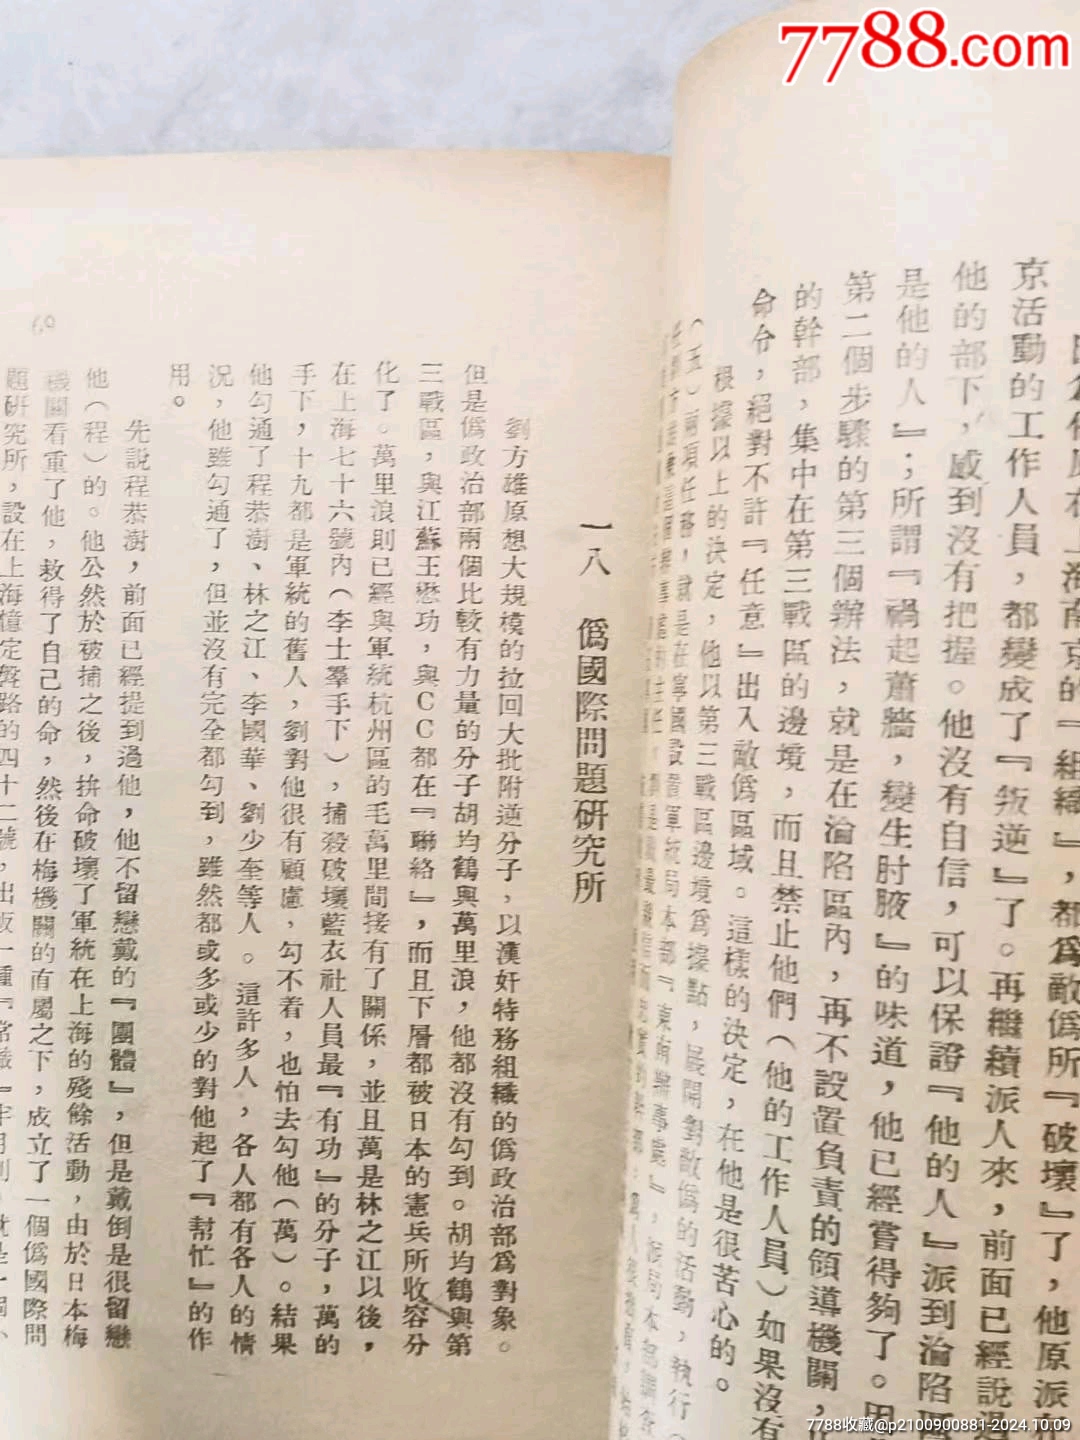 7788.com
京活動的工作人員，都變成了『叛逆』了。再繼續派人來，前面已經說過
他的部下，感到沒有把握。他沒有自信，可以保證『他的人』派到淪陷區
是他的人』；所謂『禍起蕭牆，變生肘腋』的味道，他已經嘗得夠了。因
第二個步驟的第三個辦法，就是在淪陷區內，再不設置負責的領導機關，
的幹部，集中在第三戰區的邊境，而且禁止他們（他的工作人員）如果沒有
命令，絕對不許『任意』出入敵偽區域。這樣的決定，在他是很苦心的。
根據以上的決定，他以第三戰區邊境爲據點，展開對敵偽的活動，執行
（五）兩項任務，就是在寧國設置軍統局本部『東南辦事處』，
一八　僞國際問題研究所
劉方雄原想大規模的拉回大批附逆分子，以漢奸特務組織的僞政治部爲對象。
但是僞政治部兩個比較有力量的分子胡均鶴與萬里浪，他都沒有勾到。胡均鶴與第
三戰區，與江蘇王懋功，與CC都在『聯絡』，而且下層都被日本的憲兵所收容分
化了。萬里浪則已經與軍統杭州區的毛萬里間接有了關係，並且萬是林之江以後，
在上海七十六號內（李士羣手下），捕殺破壞藍衣社人員最『有功』的分子，萬的
手下，十九都是軍統的舊人，劉對他很有顧慮，勾不着，也怕去勾他（萬）。結果
他勾通了程恭澍、林之江、李國華、劉少奎等人。這許多人，各人都有各人的情
況，他雖勾通了，但並沒有完全都勾到，雖然都或多或少的對他起了『幫忙』的作
用。
先說程恭澍，前面已經提到過他，他不留戀戴的『團體』，但是戴倒是很留戀
他（程）的。他公然於被捕之後，拚命破壞了軍統在上海的殘餘活動，由於日本梅
機關看重了他，救得了自己的命，然後在梅機關的直屬之下，成立了一個僞國際問
題研究所，設在上海憶定盤路的四十二號，出版一種『常識』半月刊，就是一個小
69
7788收藏@p2100900881-2024.10.09